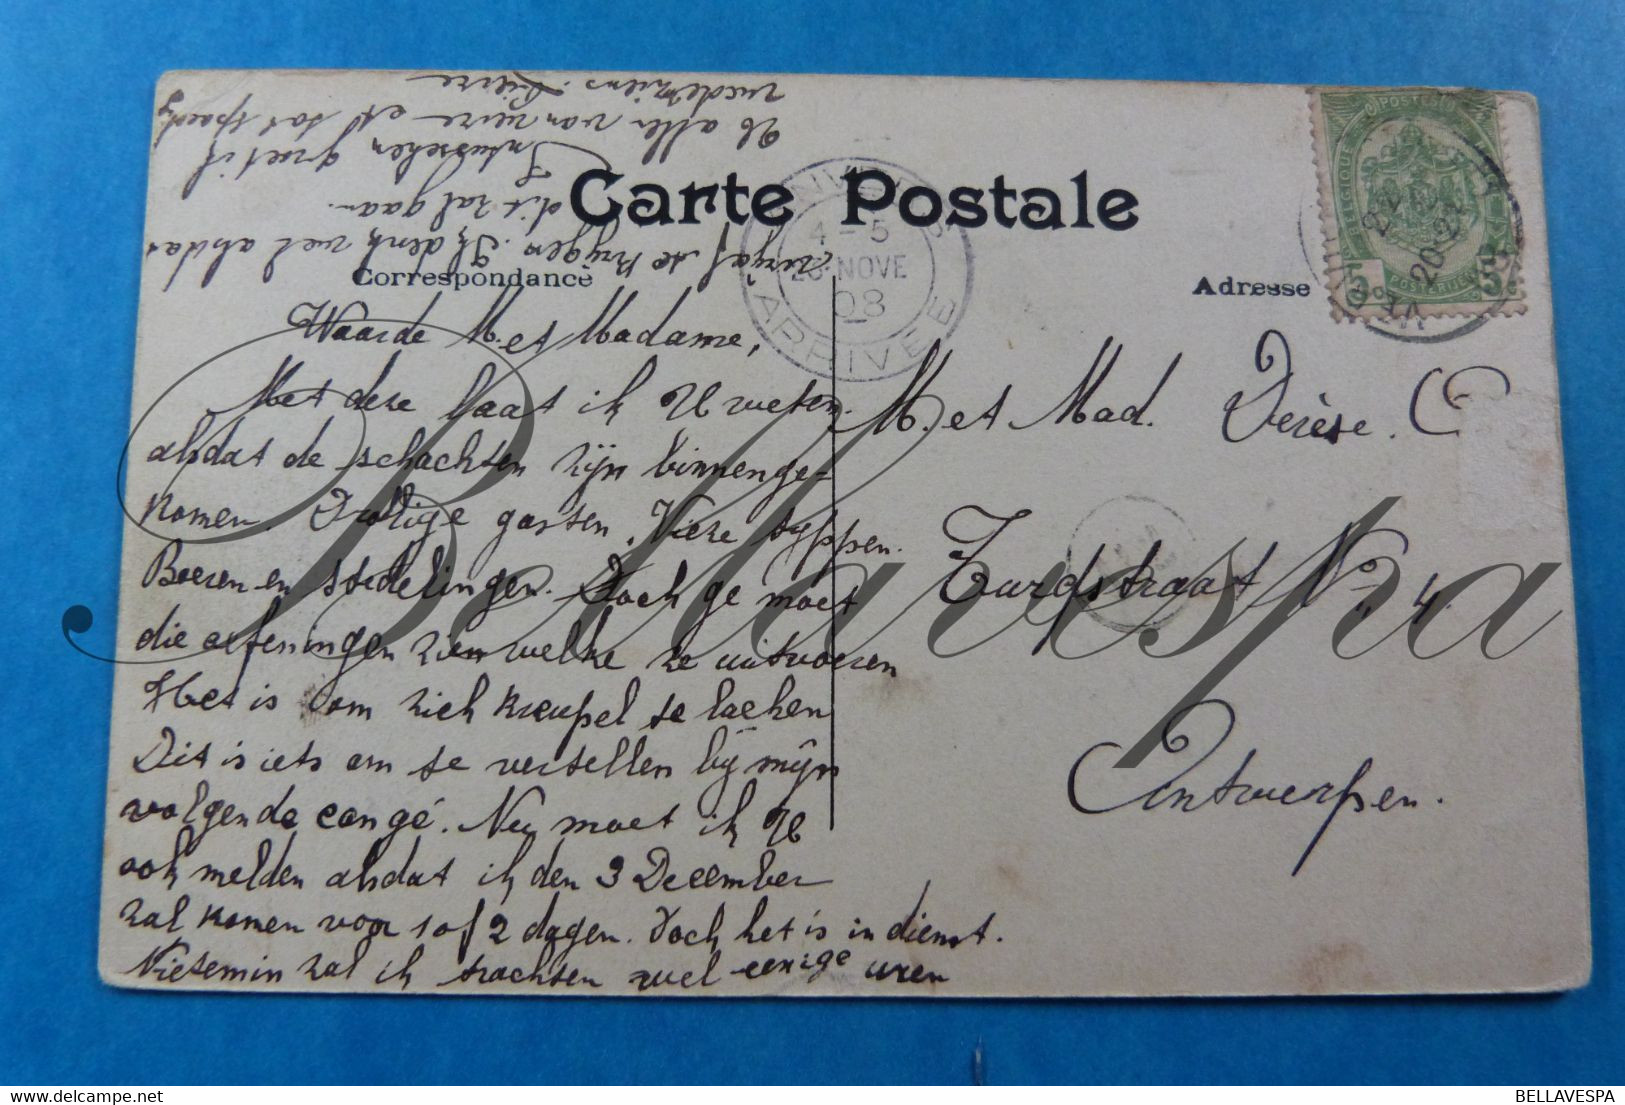 Carte Postale
Correspondance
Adresse
ANVERS
4-5
NOVE
08
ARRIVEE
BELGIQUE
POSTERIJEN
Waarde M. et Madame,
Met deze laat ik U weten
alsdat de schachten zijn binnenge-
komen. Drollige gasten, Vieze typpen.
Boeren en stedelingen. Doch ge moet
die oefeningen zien welke ze uitvoeren
Het is om zich kreupel te lachen
Dit is iets om te vertellen bij mijn
volgende congé. Nu moet ik U
ook melden alsdat ik den 3 December
zal komen voor 1 of 2 dagen. Doch het is in dienst.
Nietemin zal ik trachten wel eenige uren
verlof te krygen. Ik denk wel alsdat
dit zal gaan.
Intusschen groet ik
U allen van verre en tot spoedig
wederziens.
M. et Mad.
Turfstraat No. 4.
Antwerpen.
Bellavespa
BELLAVESPA